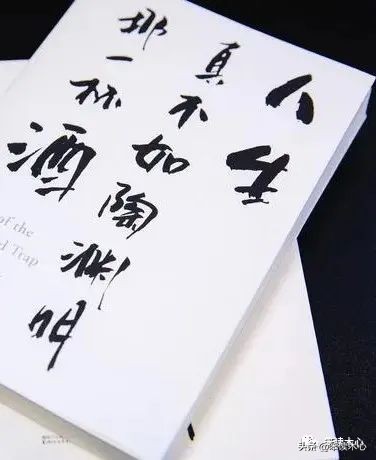 人生
真不如陶渊明
那一杯酒
of the
Trap
木心
头条 @ 木心